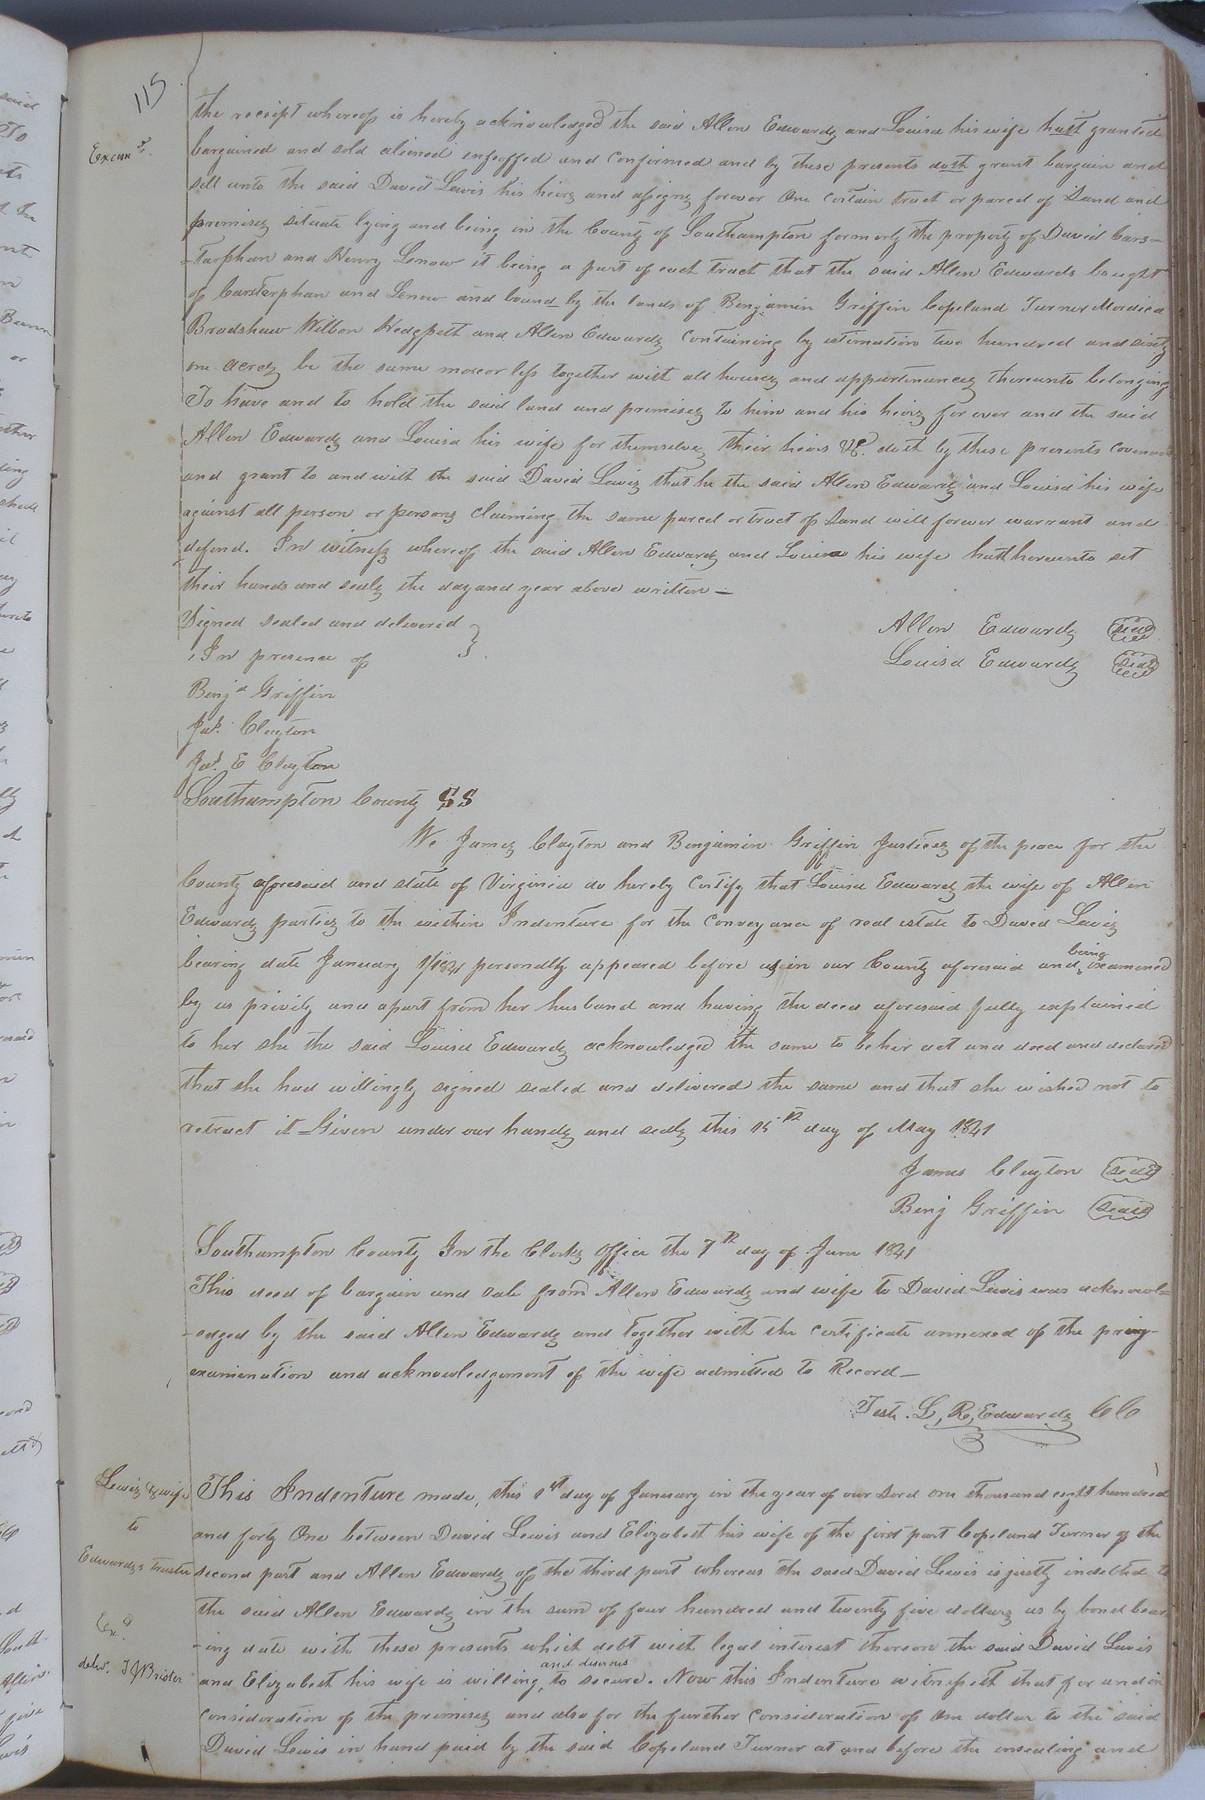 115
the receipt whereof is hereby acknowledged the said Allen Edwards and Louisa his wife hath granted
Examd.
bargained and sold aliened enfeoffed and confirmed and by these presents doth grant bargain and
sell unto the said David Lewis his heirs and assigns forever One certain tract or parcel of Land and
premises situate lying and being in the County of Southampton formerly the property of David Cars-
-tarphan and Henry Lenow it being a part of each tract that the said Allen Edwards bought
of Carstarphan and Lenow and bound by the lands of Benjamin Griffin Copeland Turner Mordica
Bradshaw Wilson Hedgpeth and Allen Edwards containing by estimation two hundred and sixty
one acres be the same more or less together with all houses and appurtinances thereunto belonging
To have and to hold the said land and premises to him and his heirs forever and the said
Allen Edwards and Louisa his wife for themselves their heirs &c. doth by these presents covenant
and grant to and with the said David Lewis that he the said Allen Edwards and Louisa his wife
against all person or persons claiming the same parcel or tract of Land will forever warrant and
defend. In witness whereof the said Allen Edwards and Louisa his wife hath hereunto set
their hands and seals the day and year above written —
Signed sealed and delivered }
In presence of
Allen Edwards (seal)
Louisa Edwards (seal)
Benja Griffin
Jas. Clayton
Jas. E Clayton
Southampton County SS
We James Clayton and Benjamin Griffin Justices of the peace for the
County aforesaid and state of Virginia do hereby certify that Louisa Edwards the wife of Allen
Edwards parties to the within Indenture for the conveyance of real estate to David Lewis
bearing date January 1/1841 personally appeared before us in our County aforesaid and being examened
by us privily and apart from her husband and having the deed aforesaid fully explained
to her she the said Louisa Edwards acknowledged the same to be her act and deed and declared
that she had willingly signed sealed and delivered the same and that she wished not to
retract it Given under our hands and seals this 15th day of May 1841
James Clayton (seal)
Benj Griffin (seal)
Southampton County In the Clerks Office the 7th day of June 1841
This deed of bargain and sale from Allen Edwards and wife to David Lewis was acknowl=
-edged by the said Allen Edwards and together with the certificate annexed of the privy-
examination and acknowledgement of the wife admitted to Record —
Test. L, R, Edwards CC
Lewis & wife
to
Edwards trustee
Exd
delvd. T J Brister
This Indenture made, this 1st day of January in the year of our Lord one thousand eight hundred
and forty One between David Lewis and Elizabeth his wife of the first part Copeland Turner of the
second part and Allen Edwards of the third part whereas the said David Lewis is justly indebted to
the said Allen Edwards in the sum of four hundred and twenty five dollars as by bond bear
-ing date with these presents which debt with legal interest thereon the said David Lewis
and Elizabeth his wife is willing and desirous to secure. Now this Indenture witnesseth that for and in
consideration of the premises and also for the further consideration of One dollar to the said
David Lewis in hand paid by the said Copeland Turner at and before the ensealing and